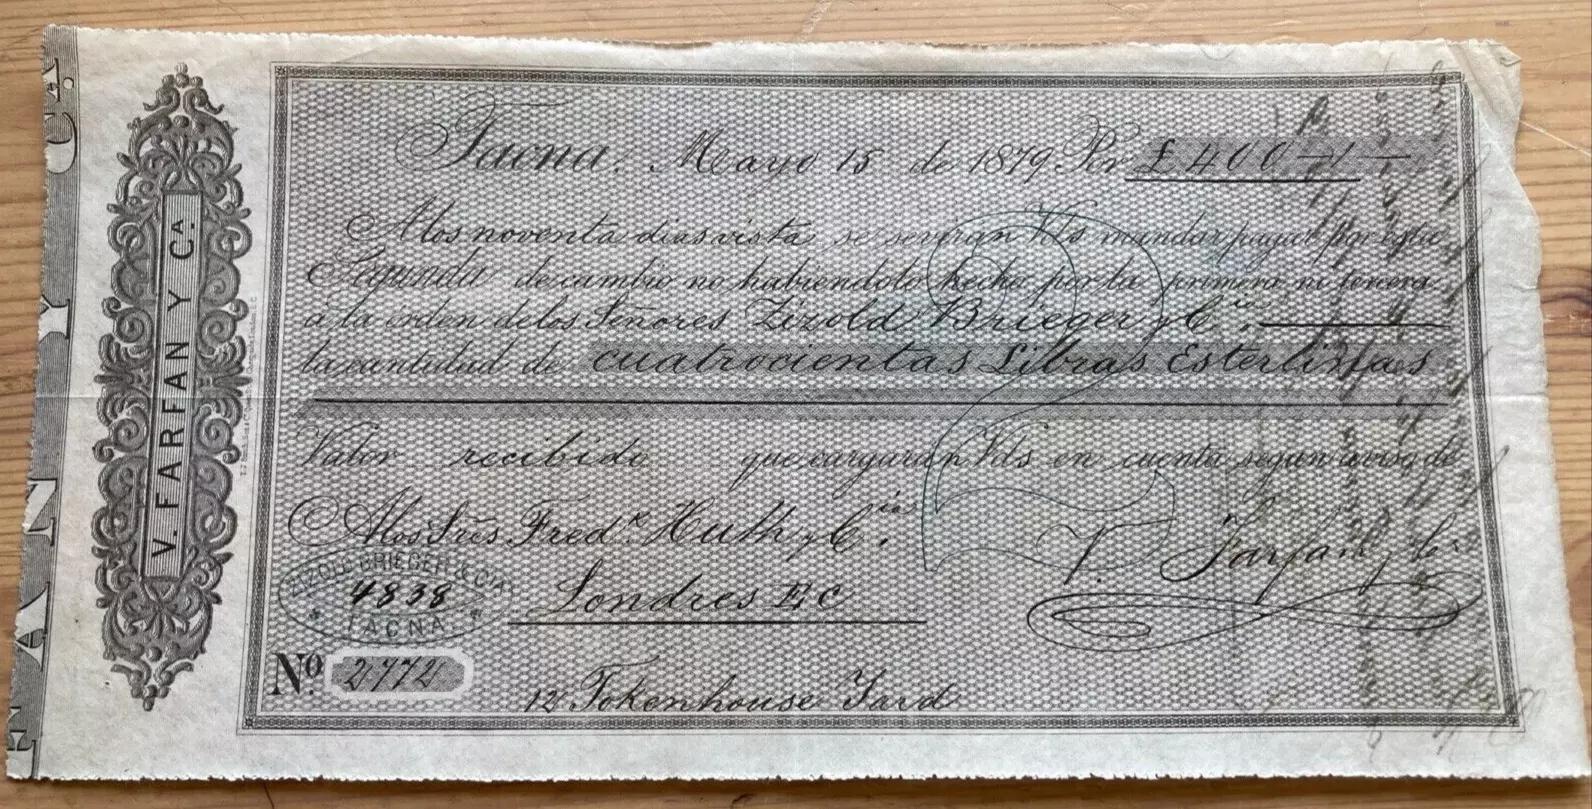 V. FARFAN Y CA.
FARFAN Y CA.
Tacna, Mayo 15 de 1879 Por £ 400 - / -
A los noventa dias vista se serviran Vds mandar pagar por esta
Segunda de cambio no habiendolo hecho por la primera ni tercera
á la orden de los Señores Zizold Brieger y Cia.
la cantidad de cuatrocientas Libras Esterlinas
Valor recibido que cargaran Vds en cuenta segun aviso de
A los Sres Fredk. Huth y Cia.
V. Farfan y Ca
ZIZOLD BRIEGER & CIA
4838
TACNA
Londres E C
No. 2772
12 Tokenhouse Yard